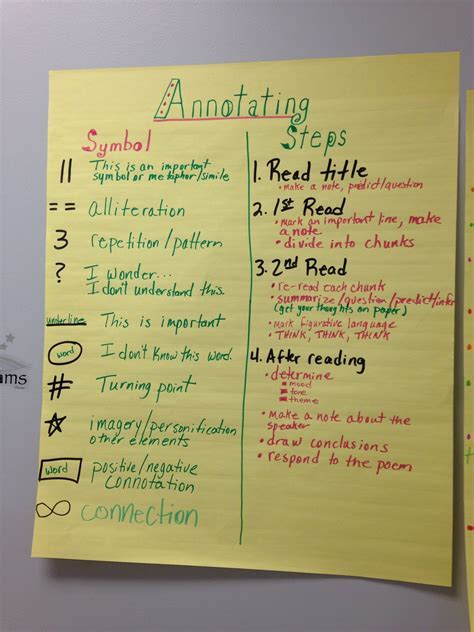 Annotating
Symbol
|| This is an important
symbol or metaphor/simile
== alliteration
3 repetition/pattern
? I wonder...
I don't understand this.
underline This is important
word I don't know this word.
# Turning point
☆ imagery/personification
other elements
word positive/negative
connotation
∞ connection
Steps
1. Read title
• make a note, predict/question
2. 1st Read
• mark an important line, make
a note
• divide into chunks
3. 2nd Read
• re-read each chunk
• summarize/question/predict/infer
(get your thoughts on paper)
• mark figurative language
• THINK, THINK, THINK
4. After reading
• determine
mood
tone
theme
• make a note about the
speaker
• draw conclusions
• respond to the poem
ams